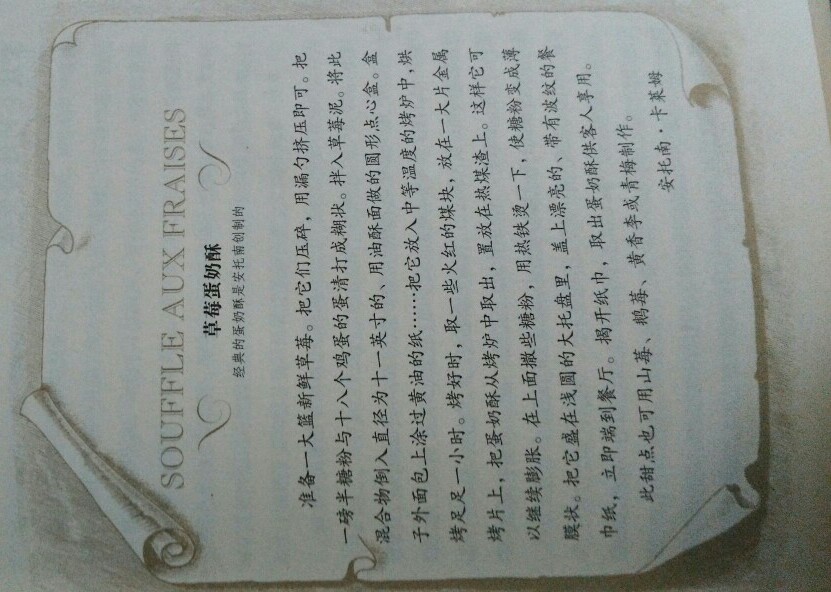 SOUFFLE AUX FRAISES
草莓蛋奶酥
经典的蛋奶酥是安托南创制的
准备一大篮新鲜草莓。把它们压碎，用漏勺挤压即可。把
一磅半糖粉与十八个鸡蛋的蛋清打成糊状。拌入草莓泥。将此
混合物倒入直径为十一英寸的、用油酥面做的圆形点心盒。盒
子外面包上涂过黄油的纸……把它放入中等温度的烤炉中，烘
烤足足一小时。烤好时，取一些火红的煤块，放在一大片金属
烤片上，把蛋奶酥从烤炉中取出，置放在热煤渣上。这样它可
以继续膨胀。在上面撒些糖粉，用热铁烫一下，使糖粉变成薄
膜状。把它盛在浅圆的大托盘里，盖上漂亮的、带有波纹的餐
巾纸，立即端到餐厅。揭开纸巾，取出蛋奶酥供客人享用。
此甜点也可用山莓、鹅莓、黄香李或青梅制作。
安托南·卡莱姆